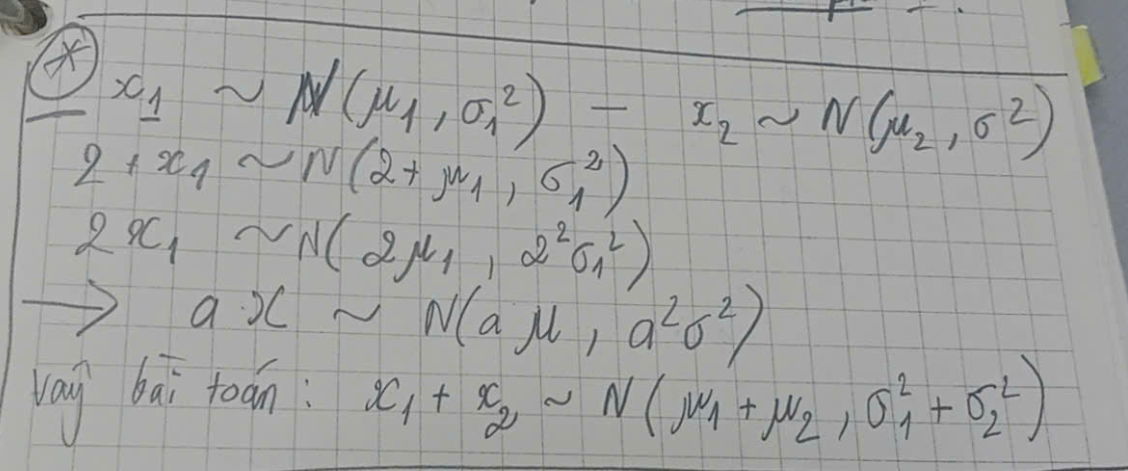 * x₁ ~ N(μ₁, σ₁²) – x₂ ~ N(μ₂, σ²)
2 + x₁ ~ N(2 + μ₁, σ₁²)
2x₁ ~ N(2μ₁, 2²σ₁²)
→ a.x ~ N(aμ, a²σ²)
vậy bài toán : x₁ + x₂ ~ N(μ₁ + μ₂, σ₁² + σ₂²)